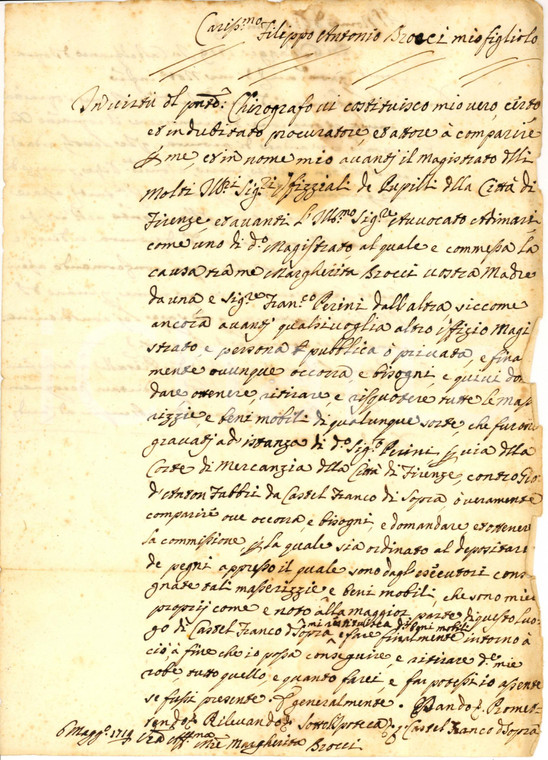 Cariss.mo Filippo Antonio Brocci mio figliolo
In virtù del pnte Chirografo vi costituisco mio vero, certo
et indubitato procuratore, et attore à comparire
p me, et in nome mio avanti il Magistrato delli
Molti Ill.ri Sig.ri Offizziali de Pupilli della Città di
Firenze, et avanti l'Ill.mo Sig.re Avvocato Adimari
come uno di d.o Magistrato al quale e commessa la
causa trà me Margherita Brocci vostra Madre
da una, e Sig.re Fran.co Perini dall'altra siccome
ancora avanti qualsivoglia altro offizio Magi
strato, e persona pubblica ò privata, e fina
mente ovunque occorra e bisogni, e quivi do
dare ottenere, ritirare e risquotere tutte le mas
rizzie, e beni mobili di qualunque sorte, che furon
gravati ad istanza di d.o Sig.e Perini p via della
Corte di Mercanzia della Città di Firenze, contro Gio
d'Anton Fabbri da Castel Franco di Sopra ò veramente
comparire ove occorra e bisogni, e domandare et ottenere
la commissione p la quale sia ordinato al depositare
de pegni appresso il quale sono dagl'esecutori cons
gnate tali masserizzie e beni mobili, che sono miei
proprij come e noto alla maggior parte di questo luo
go di Castel Franco di Sopra e fare finalmente intorno à
ciò, à fine che io possa conseguire, e ritirare d.e mie
robe tutto quello, e quanto farei, e far potessi io assente
se fussi presente generalmente. Dando Promet
tendo Rilevando Sott'Ipoteca Castel Franco di Sopra
6 Magg.o 1714
Margherita Brocci